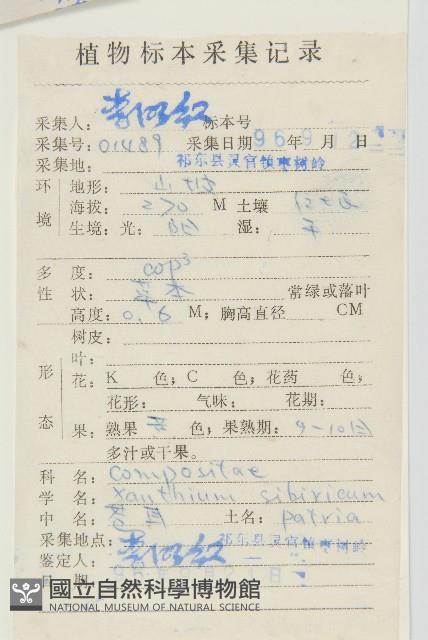 植物标本采集记录
采集人: 标本号
采集号: 01489 采集日期 95 9 年 月 日
采集地: 祁东县灵官镇枣树岭
环 地形: 山坡
境 海拔: 270 M 土壤
生境: 光: 阳 湿: 干
多 度: cop3
性 状: 草本 常绿或落叶
高度: 0.6 M; 胸高直径 CM
树皮:
形 叶:
花: K 色; C 色, 花药 色,
花形: 气味: 花期:
态 果: 熟果 色, 果熟期: 9-10月
多汁或干果。
科 名: compositae
学 名: xanthium sibiricum
中 名: 苍耳 土名: patria
采集地点: 祁东县灵官镇枣树岭
鉴定人:
日 期
國立自然科學博物館
NATIONAL MUSEUM OF NATURAL SCIENCE